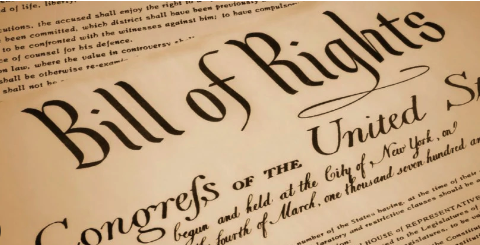 d of life, liberty,
cutions, the accused shall enjoy the right to
been committed, which district shall have been previously
to be confronted with the witnesses against him; to have compulsory
ce of counsel for his defence.
on law, where the value in controversy sh
shall be otherwise re-exami
shall not be
Bill of Rights
Congrefs OF THE United St
begun and held at the City of New York, on
the fourth of March, one thousand seven hundred an
number of the States having, at the time of their
laratory and restrictive clauses should be a
HOUSE of REPRESENTATIVE
the Legislatures of
Legislatures, to be
Constitu